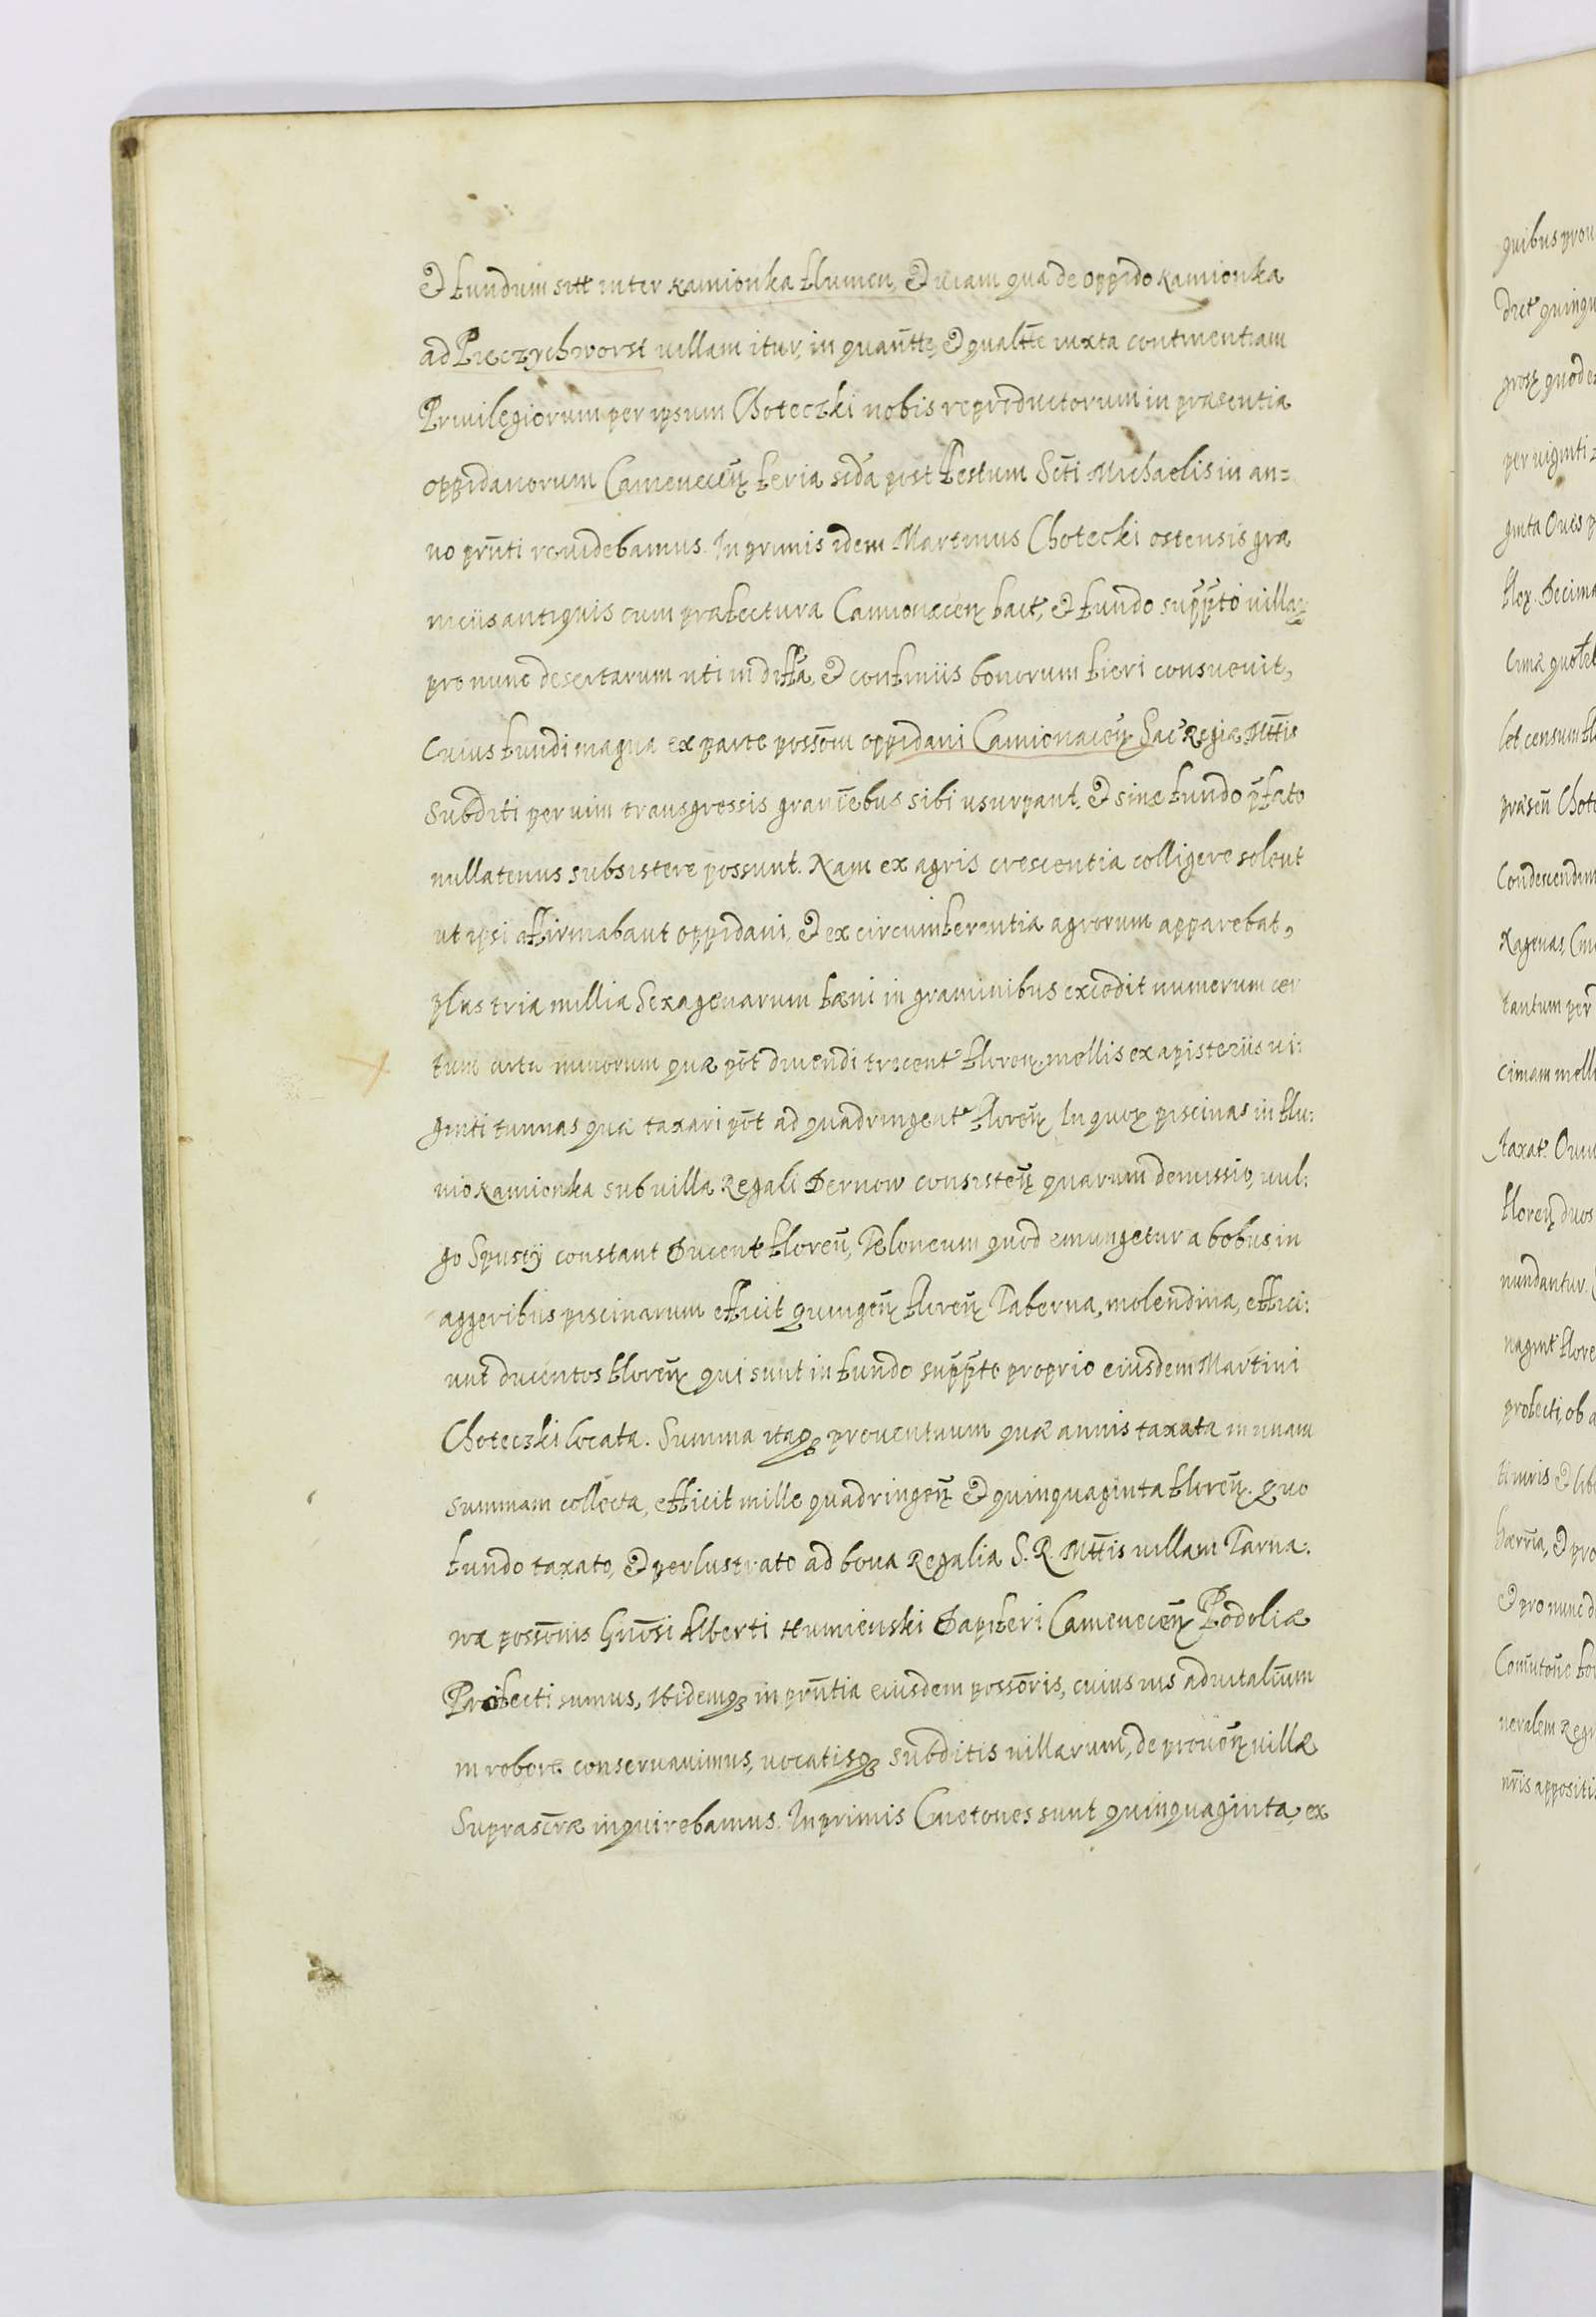 & fundum sitt inter Kamionka flumen, & viam qua de oppido Kamionka
ad Pieczychworst villam itur, in quañtte, & qualtte iuxta continentiam
Privilegiorum per ipsum Choteczki nobis reproductorum in præsentia
oppidanorum Cameneceñ feria scda post Festum Scti Michaelis in an=
no prñti revidebamus. In primis idem Martinus Chotecki ostensis gra
niciis antiquis cum præfectura Camionaceñ fact, & fundo suppto villaꝝ
pro nunc desertarum uti in diffa, & confiniis bonorum fieri consuevit,
Cuius fundi magna ex parte possom oppidani Camionaceñ Sac Regiæ Mttis
Subditi per vim transgressis graniebus sibi usurpant, & sine fundo pfato
nullatenus subsistere possunt. Nam ex agris crescentia colligere solent
ut ipsi affirmabant oppidani, & ex circumferentia agrorum apparebat,
plus tria millia Sexagenarum fæni in graminibus excedit numerum cer
tum curru minorum quæ pot divendi tricent floreñ, mellis ex apisteriis vi:
ginti tunnas quæ taxari pot ad quadringent floreñ In quoꝝ piscinas in flu:
vio Kamionka sub villa Regali Dernow consisteñ quarum demissio, vul:
go Spusty constant Ducent floreñ, Teloneum quod emungetur a bobus, in
aggeribus piscinarum efficit quingeñ floreñ Taberna, molendina, effici:
unt ducentos floreñ qui sunt in fundo suppto proprio eiusdem Martini
Choteczki locata. Summa itaqȝ proventuum quæ annis taxata in unam
summam collecta, efficit mille quadringeñ & quinquaginta floreñ. Quo
fundo taxato, & perlustrato ad bona Regalia S. R. Mttis villam Tarna:
wæ possonis Gnosi Alberti Humienski Dapiferi Cameneceñ Podoliæ
Profecti sumus, ibidemqȝ in prñtia eiusdem possoris, cuius ius advitalium
in robore conservavimus, vocatisqȝ subditis villarum, de proveñ villæ
Suprascræ inquirebamus. Inprimis Cmetones sunt quinquaginta, ex